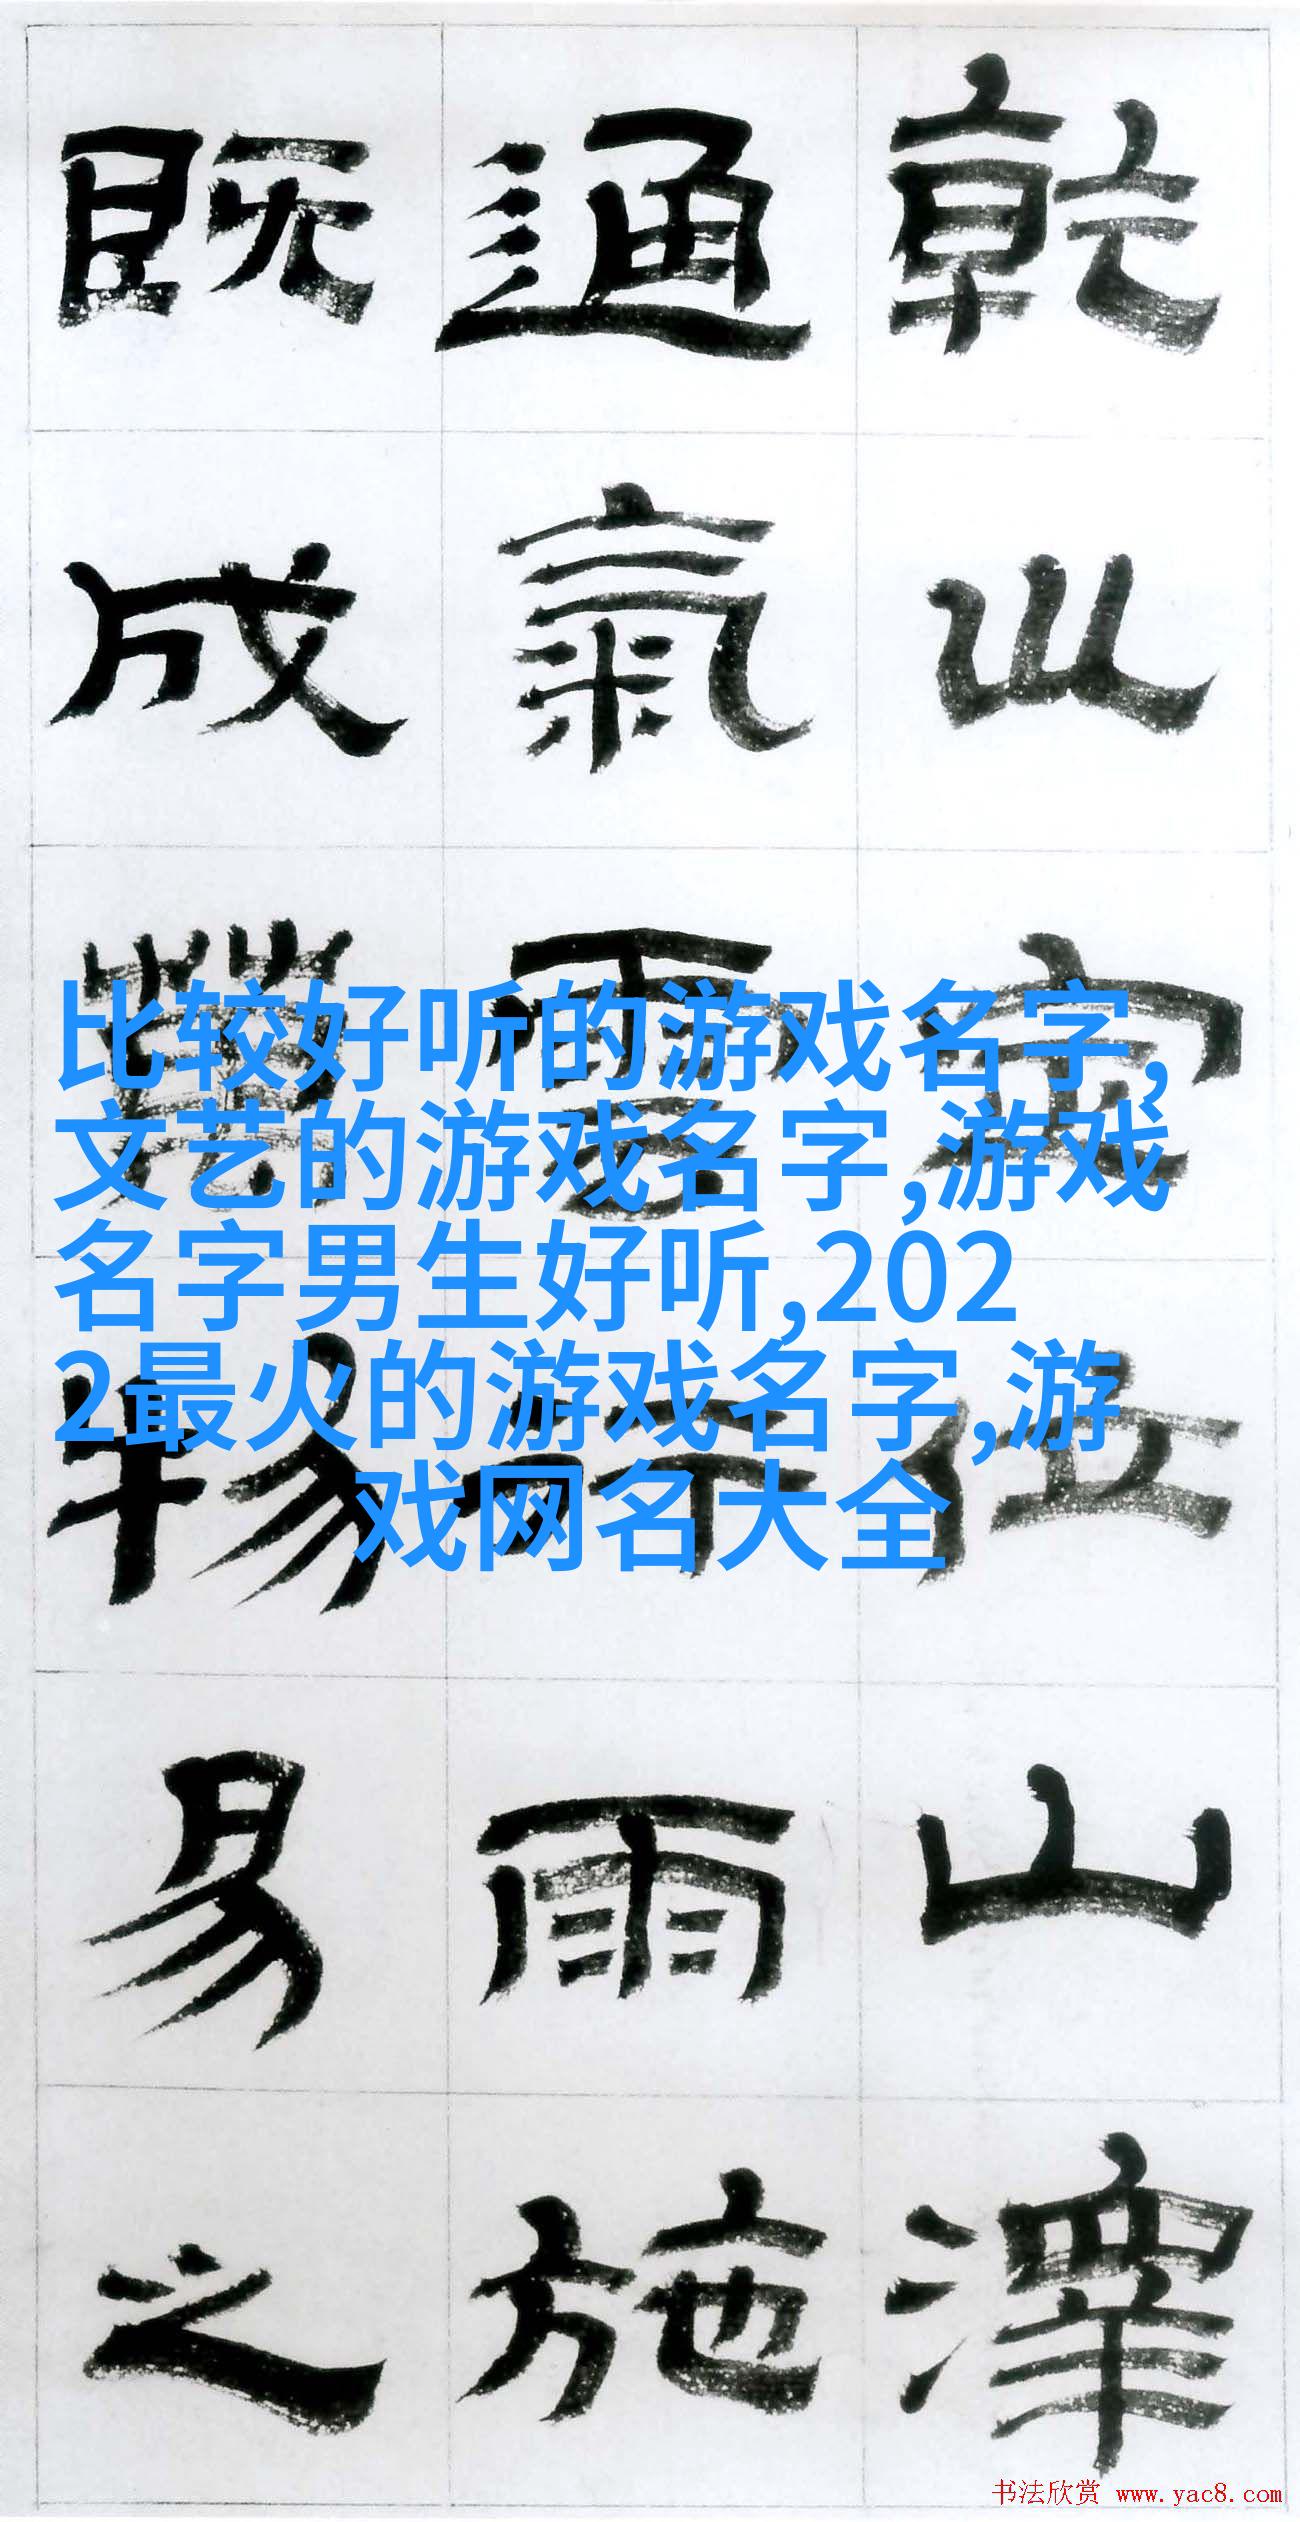 乾定位山澤
通氣雲行雨施
既成萬物易之
比较好听的游戏名字,
文艺的游戏名字,游戏
名字男生好听,202
2最火的游戏名字,游
戏网名大全
书法欣赏 www.yac8.com